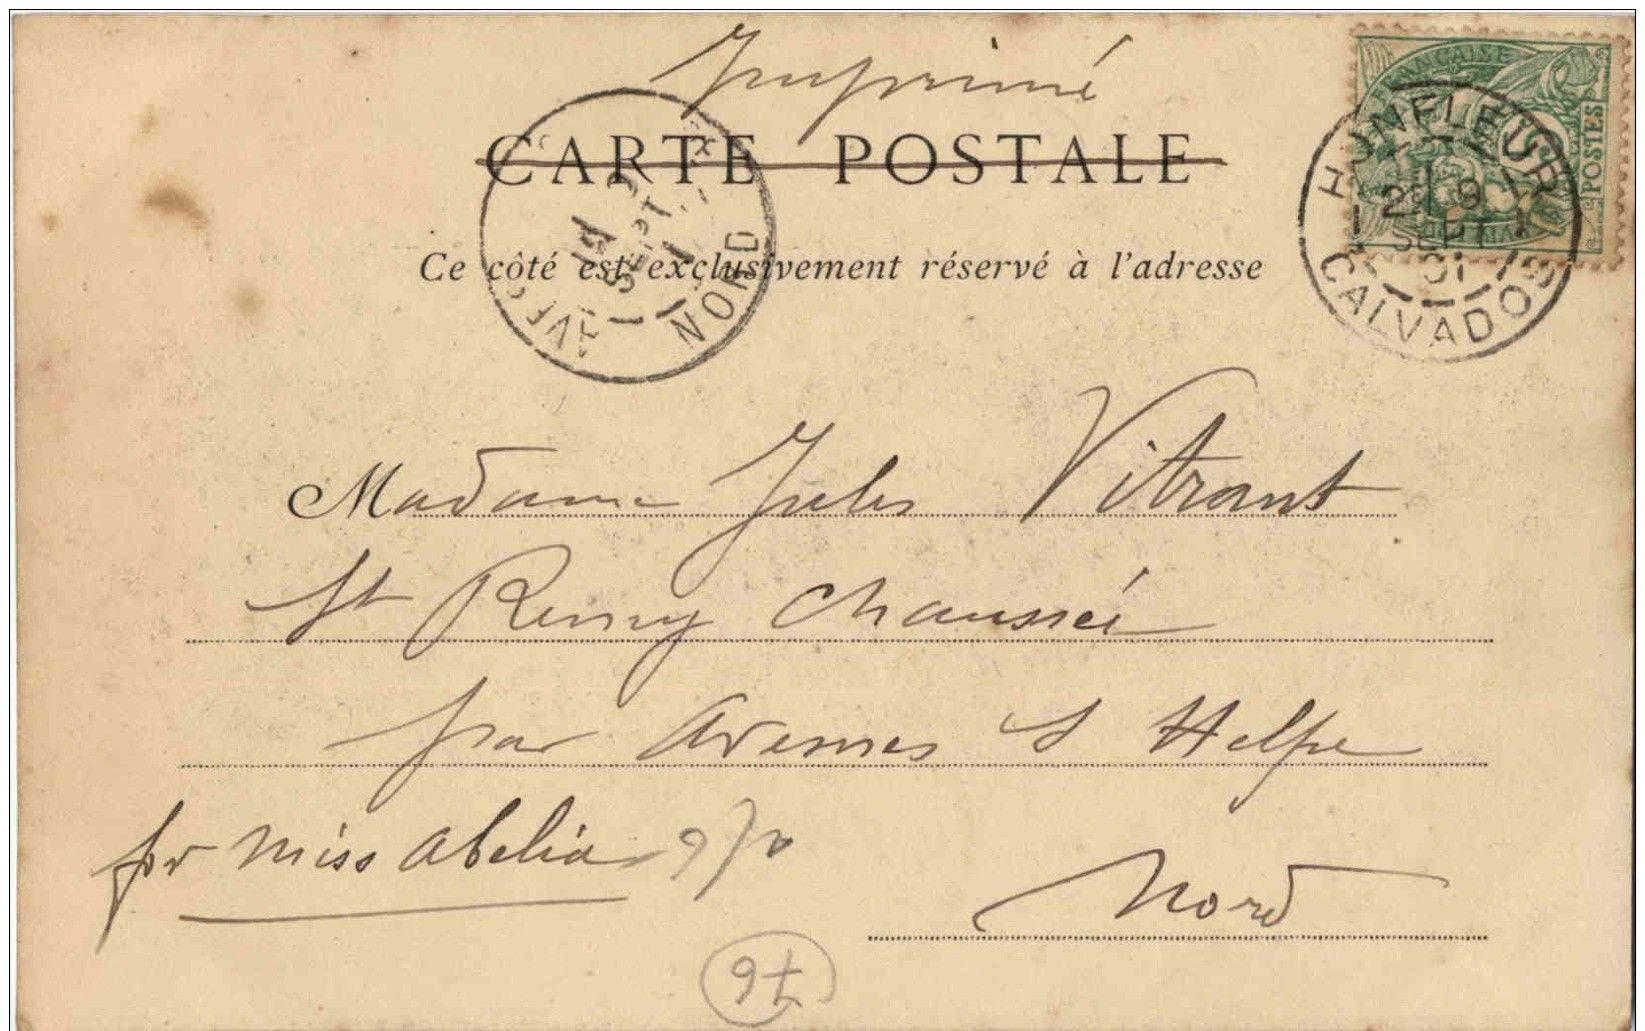 Imprimé
CARTE POSTALE
Ce côté est exclusivement réservé à l'adresse
FRANÇAISE
POSTES
HONFLEUR
SEPT
01
CALVADOS
SEPT
NORD
Madame Jules Vitrant
St Remy Chaussée
par Avesnes s Helpe
for Miss Abelia
Nord
76